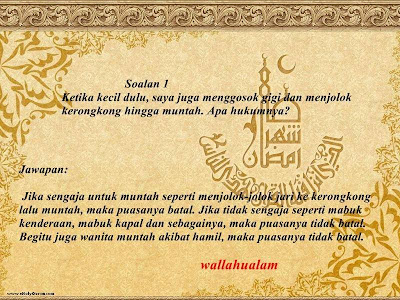 Soalan 1
Ketika kecil dulu, saya juga menggosok gigi dan menjolok
kerongkong hingga muntah. Apa hukumnya?
Jawapan:
Jika sengaja untuk muntah seperti menjolok-jolok jari ke kerongkong
lalu muntah, maka puasanya batal. Jika tidak sengaja seperti mabuk
kenderaan, mabuk kapal dan sebagainya, maka puasanya tidak batal.
Begitu juga wanita muntah akibat hamil, maka puasanya tidak batal.
wallahualam